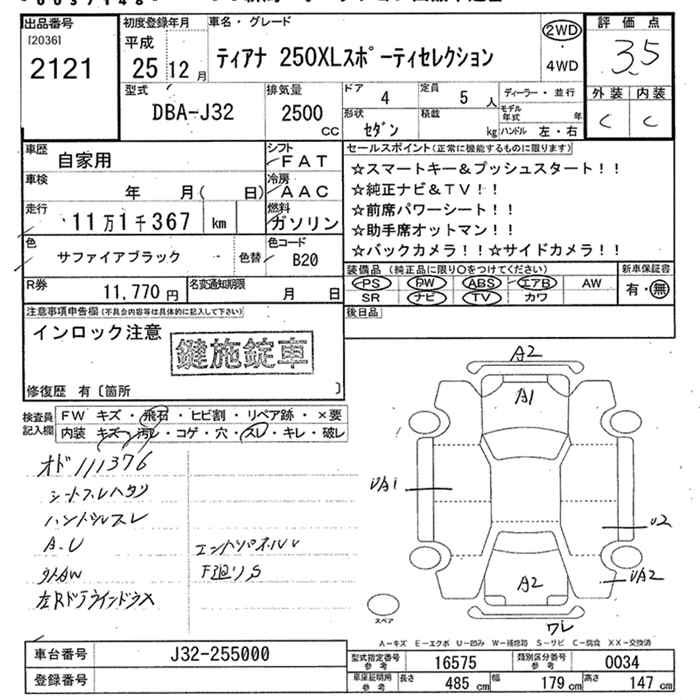 出品番号
[2036]
2121
初度登録年月
平成
25 12 月
車名・グレード
ティアナ 250XLスポーティセレクション
2WD
・
4WD
評価点
3.5
外装 内装
C C
型式
DBA-J32
排気量
2500
CC
ドア 4
定員 5 人
ディーラー・並行
モデル年式 年
形状 セダン
積載 kg
ハンドル 左・右
車歴
自家用
シフト
FAT
車検
年 月( 日)
冷房
AAC
走行
11万1千367 km
燃料
ガソリン
色
サファイアブラック
色替
色コード
B20
R券
11,770 円
名変通知期限
月 日
セールスポイント(正常に機能するものに限ります)
☆スマートキー&プッシュスタート!!
☆純正ナビ&TV!!
☆前席パワーシート!!
☆助手席オットマン!!
☆バックカメラ!!☆サイドカメラ!!
装備品 (純正品に限り○をつけてください)
新車保証書
PS PW ABS エアB AW
有・無
SR ナビ TV カワ
後日品
注意事項申告欄(不具合内容は具体的に記入して下さい)
インロック注意
鍵施錠車
修復歴 有〔箇所 〕
検査員記入欄
FW キズ・飛石・ヒビ割・リペア跡・×要
内装 キズ・汚レ・コゲ・穴・スレ・キレ・破レ
オド111376
シートスレヘタリ
ハンドルスレ
A.U
エンドリパネルU
外AW
下廻りS
左Rドアウインドウ×
A2
A1
UA1
U2
A2
UA2
ワレ
スペア
A-キズ E-エクボ U-凹み W-補修跡 S-サビ C-腐食 XX-交換済
車台番号
J32-255000
型式指定番号 参考
16575
類別区分番号 参考
0034
登録番号
車庫証明用 参考
長さ 485 cm
幅 179 cm
高さ 147 cm